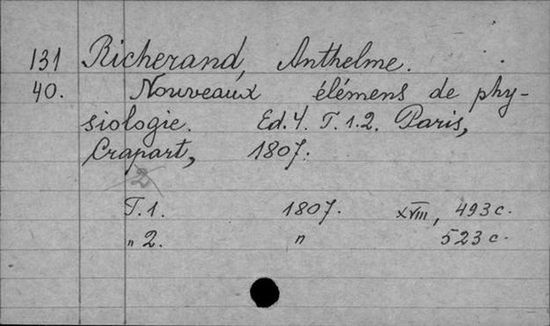 131 Richerand, Anthelme.
40. Nouveaux élémens de phy-
siologie. Ed. 4. T. 1. 2. Paris,
Crapart, 1807.
2
T. 1. 1807. XVIII, 493 c.
" 2. " 523 c.